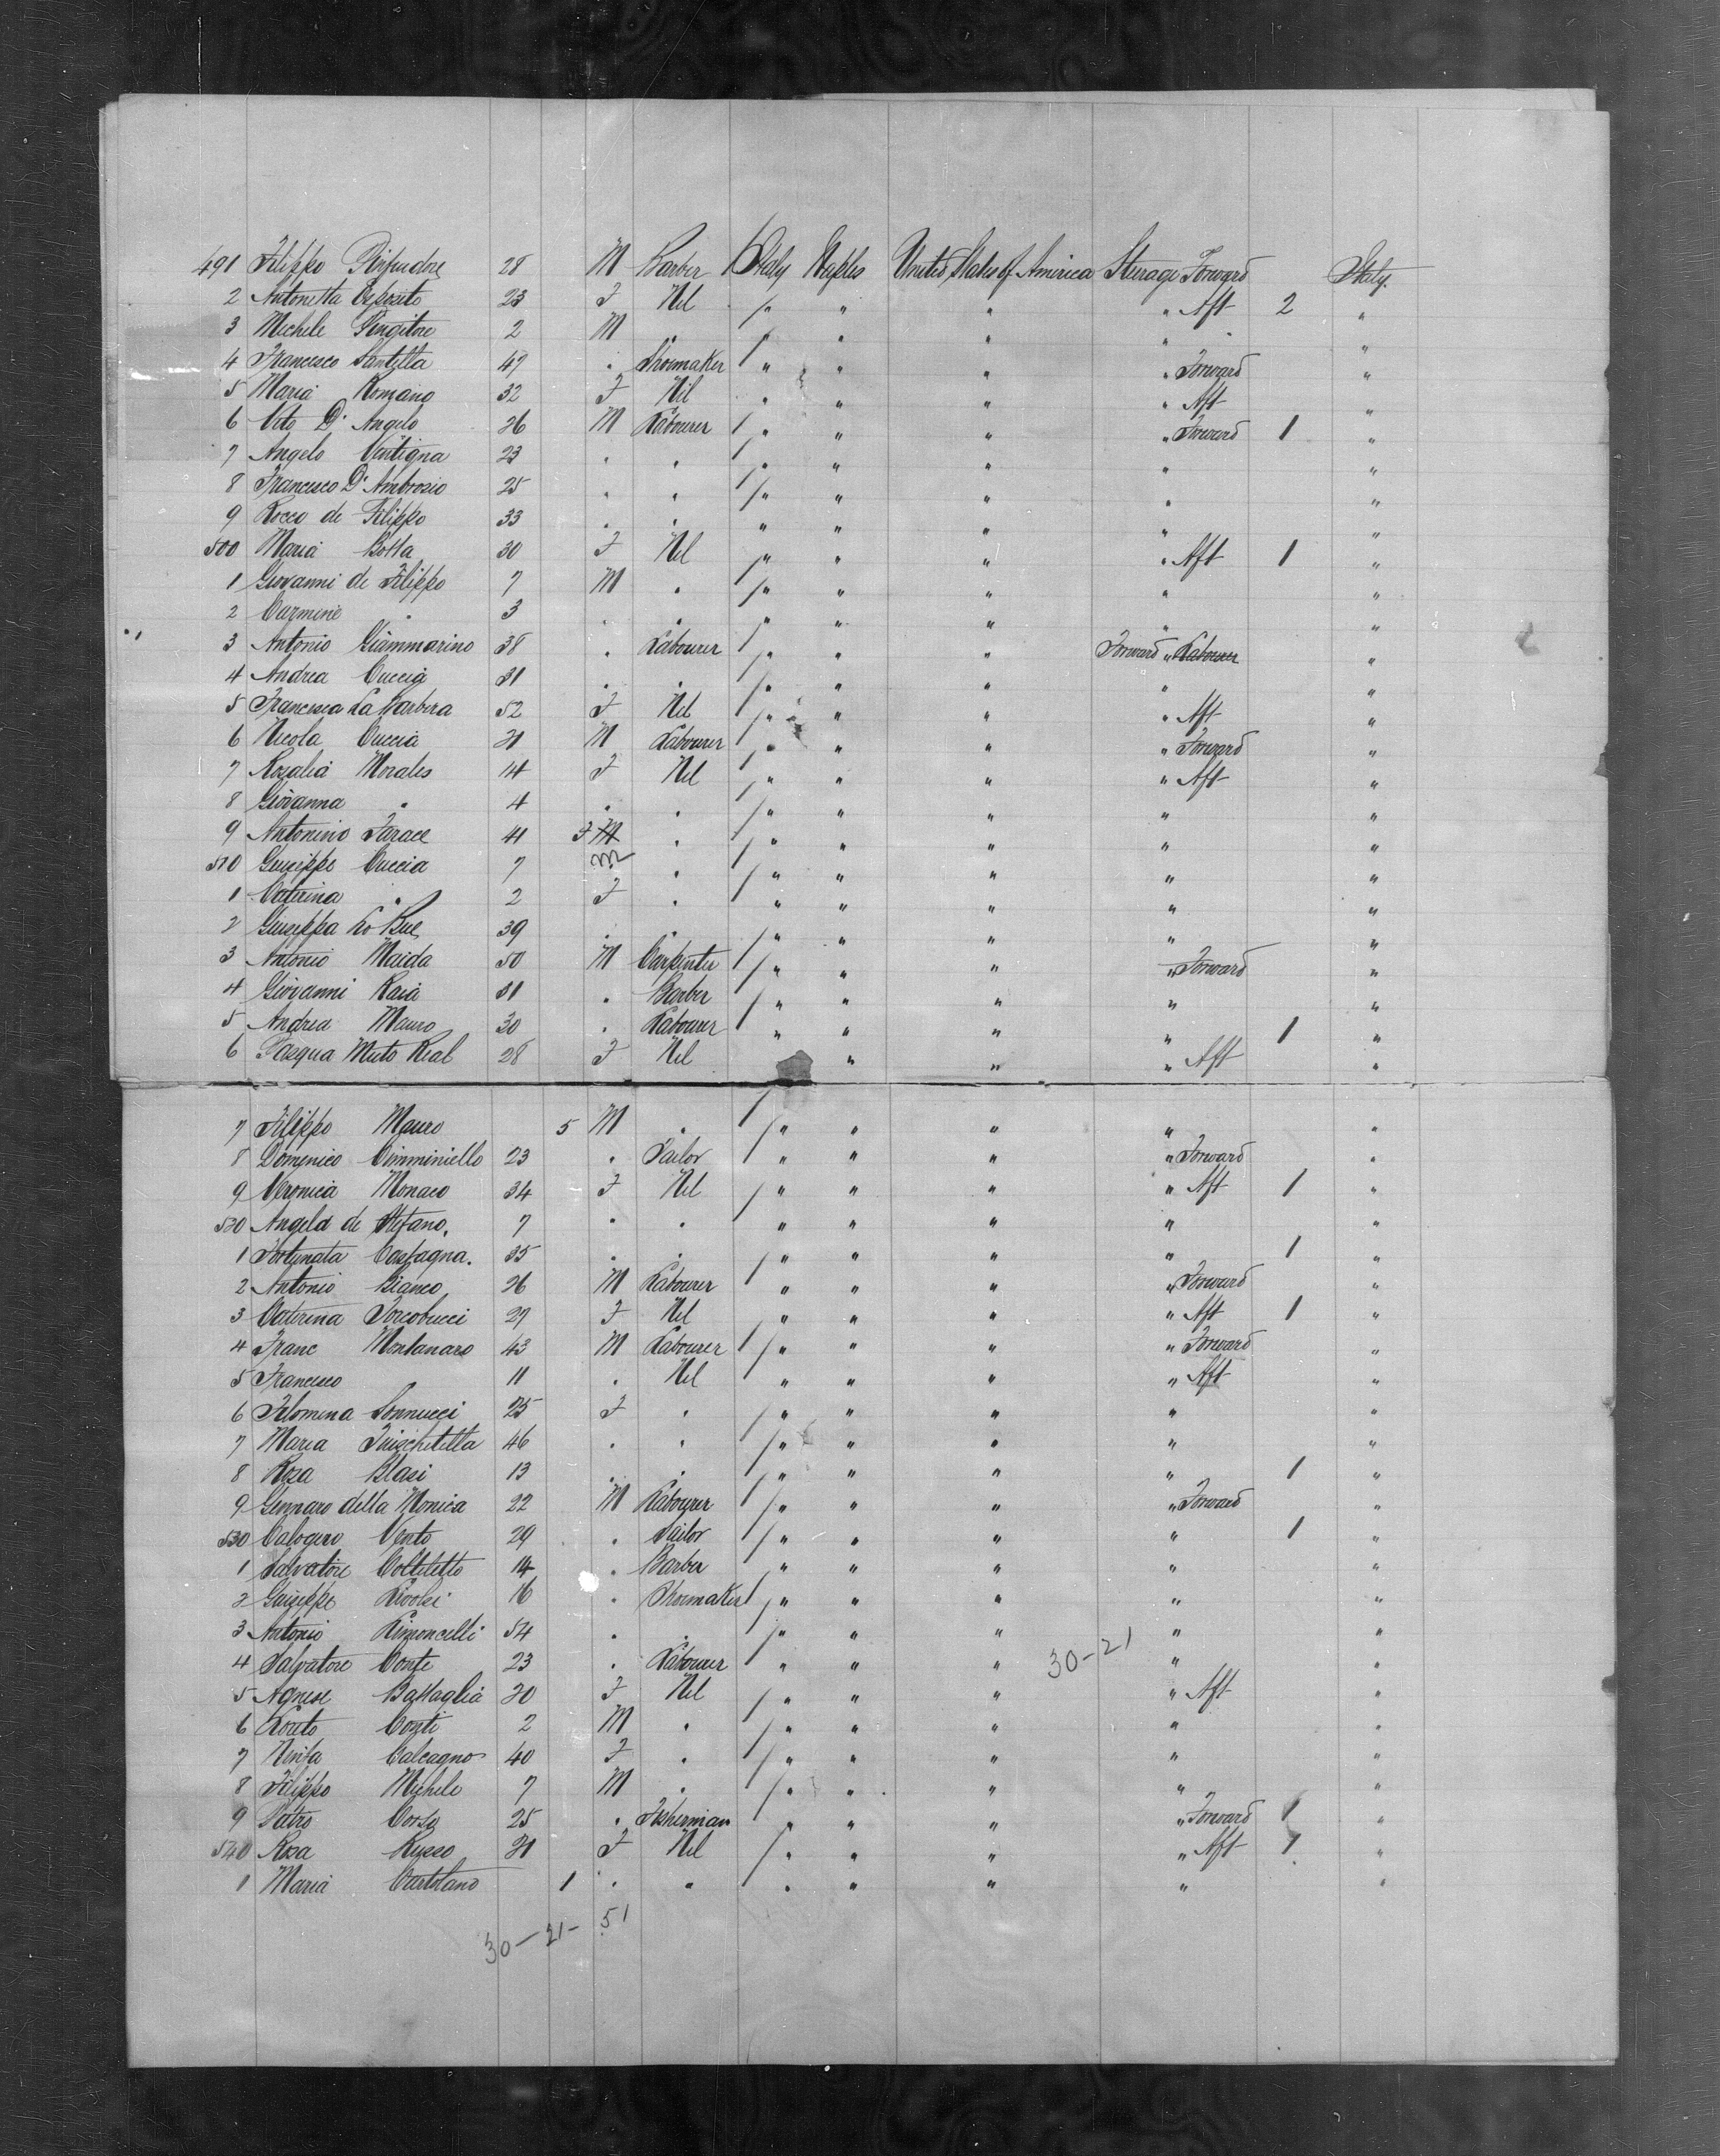 491 Filippo 28 M Barber Italy Naples United States of America Sterage Forward Italy.
2 Antonetta Esposito 23 F Nil " " " " Aft 2 "
3 Michele Pingitore 2 M " " " " " "
4 Francesco Santella 47 " Shoemaker " " " " Forward "
5 Maria Romano 32 F Nil " " " " Aft "
6 Vito D'Angelo 26 M Labourer " " " " Forward 1 "
7 Angelo Ventigna 23 " " " " " " "
8 Francesco D'Ambrosio 25 " " " " " " "
9 Rocco de Filippo 33 " " " " " " "
500 Maria Botta 30 F Nil " " " " Aft 1 "
1 Giovanni de Filippo 7 M " " " " " "
2 Carmine " 3 " " " " " " "
3 Antonio Giammarino 38 " Labourer " " " Forward " Labourer "
4 Andrea Cuccia 31 " " " " " " "
5 Francesca La Barbera 52 F Nil " " " " Aft "
6 Nicola Cuccia 21 M Labourer " " " " Forward "
7 Rosalia Morales 14 F Nil " " " " Aft "
8 Giovanna " 4 " " " " " " "
9 Antonino Farace 41 F M " " " " " "
510 Giuseppe Cuccia 7 M " " " " " "
1 Caterina " 2 F " " " " " "
2 Giuseppa Lo Bue 39 " " " " " " "
3 Antonio Maida 50 M Carpenter " " " " Forward "
4 Giovanni Raia 31 " Barber " " " " "
5 Andrea Mauro 30 " Labourer " " " " 1 "
6 Pasqua Muto Real 28 F Nil " " " Aft "
7 Filippo Mauro 5 M " " " " " "
8 Domenico Cimminiello 23 " Tailor " " " " Forward "
9 Veronica Monaco 34 F Nil " " " " Aft 1 "
520 Angela de Stefano. 7 " " " " " " "
1 Fortunata Castagna. 35 " " " " " " 1 "
2 Antonio Bianco 26 M Labourer " " " " Forward "
3 Caterina Iorcobucci 27 F Nil " " " " Aft 1 "
4 Franc Montanaro 43 M Labourer " " " " Forward "
5 Francesco 11 " Nil " " " " Aft "
6 Filomena Sonnucci 25 F " " " " " "
7 Maria 46 " " " " " " "
8 Rosa Blasi 13 " " " " " " 1 "
9 Gennaro della Monica 22 M Labourer " " " " Forward "
530 Calogero Vento 29 " Sailor " " " " 1 "
1 Salvatore Colteletto 14 " Barber " " " " "
2 Giuseppe 16 " Shoemaker " " " " "
3 Antonio Limoncelli 54 " " " " " " "
4 Salvatore Conte 23 " Labourer " " " 30-21 " "
5 Agnese Battaglia 20 F Nil " " " " Aft "
6 Conti 2 M " " " " " "
7 Ninfa Calcagno 40 F " " " " " "
8 Filippo Michele 7 M " " " " " "
9 Pietro Corso 25 " Fisherman " " " " Forward 1 "
540 Rosa Russo 21 F Nil " " " " Aft 1 "
1 Maria Cartolano 1 " " " " " " "
30-21-51